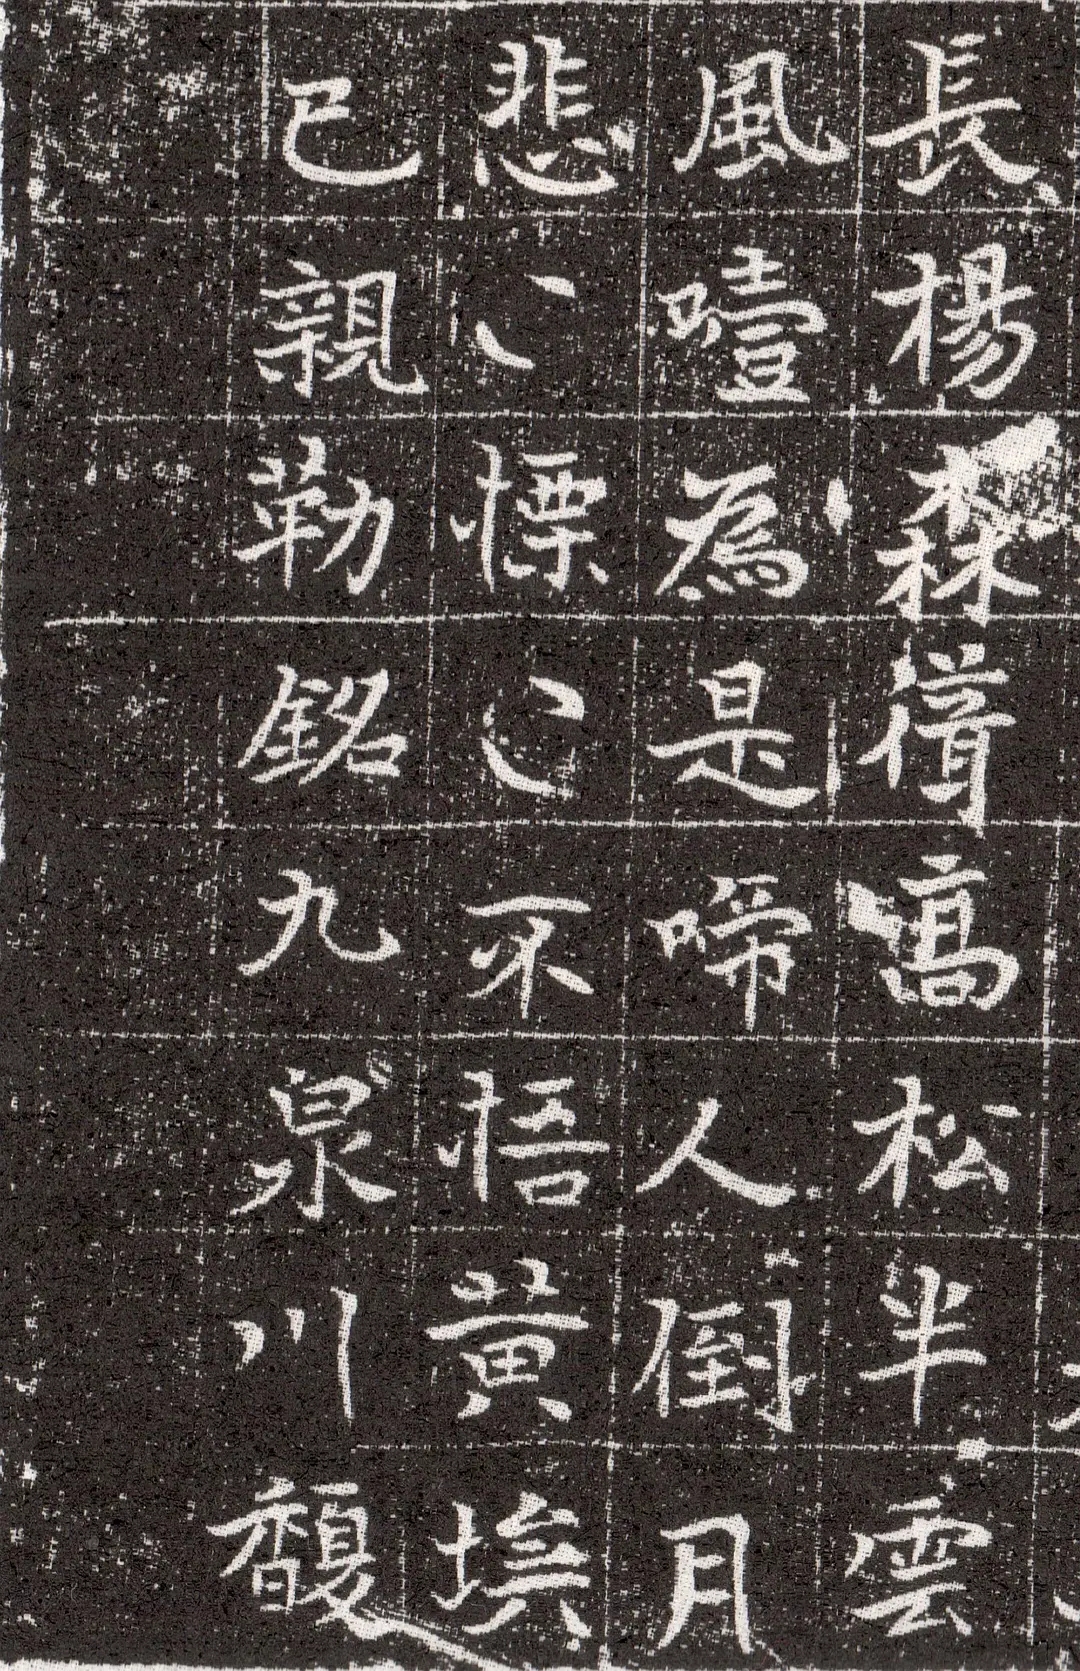 長楊森髙松半雲
風噎為是啼人倒月
悲〻慄〻不悟黄埃
已親勒銘九泉川馥